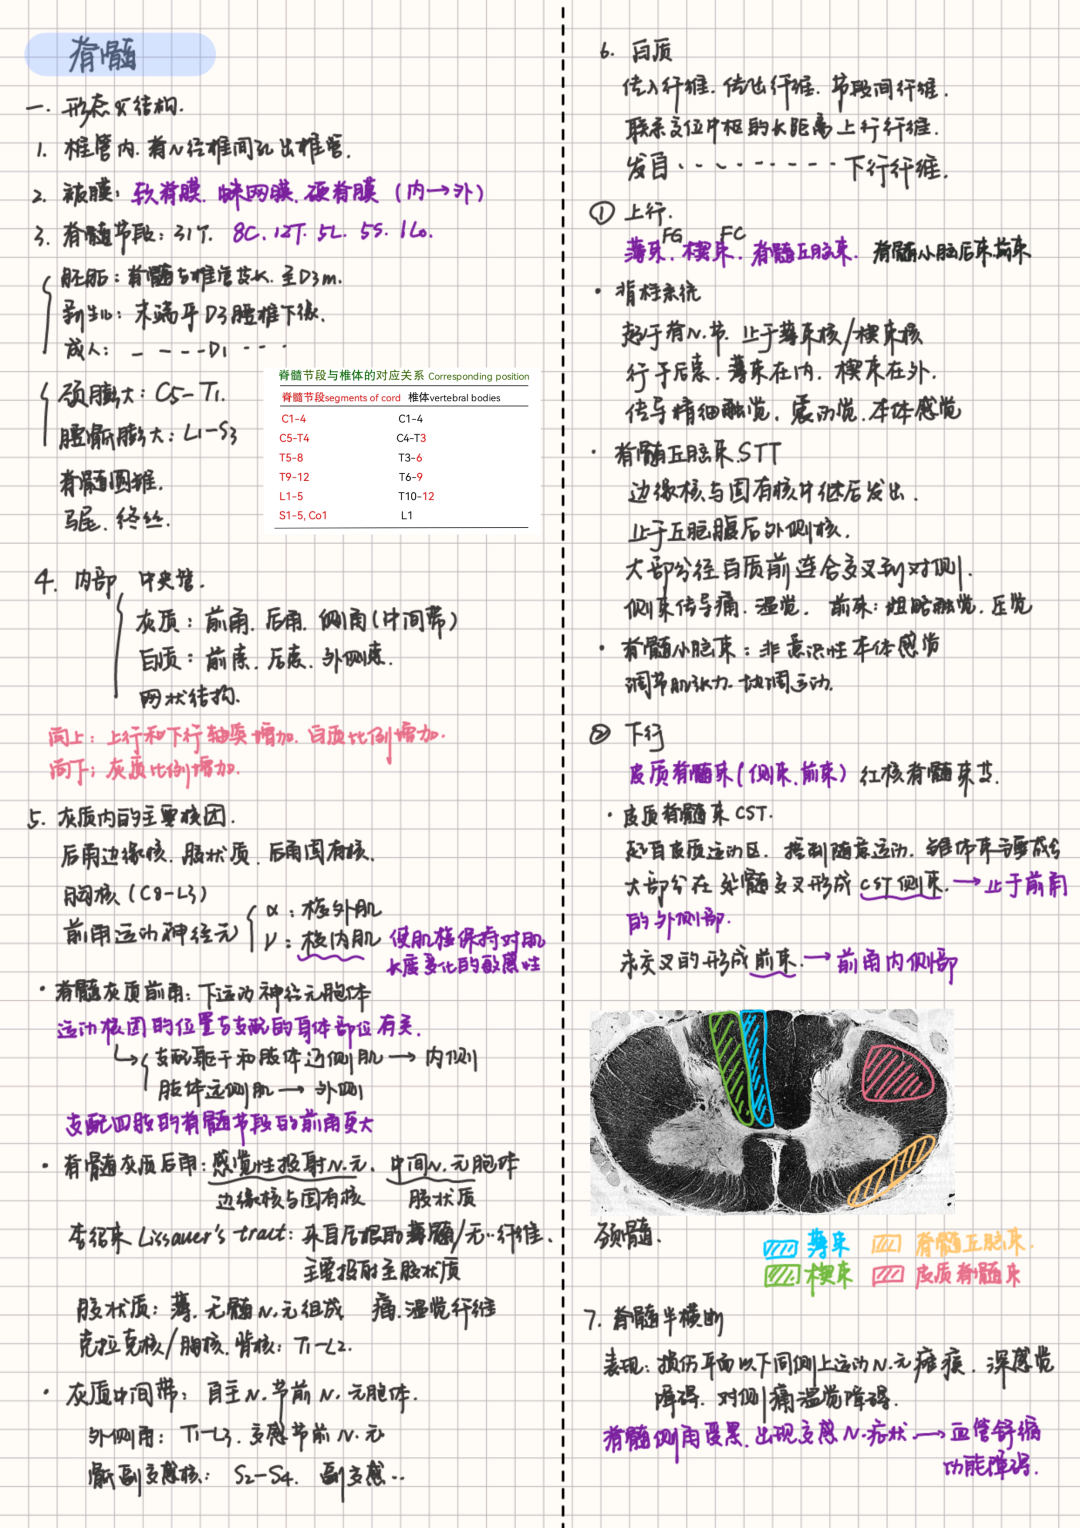 脊髓
一. 形态及结构.
1. 椎管内. 脊N经椎间孔出椎管.
2. 被膜: 软脊膜. 蛛网膜. 硬脊膜 (内→外)
3. 脊髓节段: 31个. 8C. 12T. 5L. 5S. 1Co.
胚胎: 脊髓与椎管等长. 至D3m.
新生儿: 末端平D3腰椎下缘.
成人: - - - - D1 - - -
颈膨大: C5-T1.
腰骶膨大: L1-S3
脊髓圆锥.
马尾. 终丝.
脊髓节段与椎体的对应关系 Corresponding position
脊髓节段segments of cord 椎体vertebral bodies
C1-4 C1-4
C5-T4 C4-T3
T5-8 T3-6
T9-12 T6-9
L1-5 T10-12
S1-5, Co1 L1
4. 内部 中央管.
灰质: 前角. 后角. 侧角(中间带)
白质: 前索. 后索. 外侧索.
网状结构.
向上: 上行和下行轴突增加. 白质比例增加.
向下: 灰质比例增加.
5. 灰质内的主要核团.
后角边缘核. 胶状质. 后角固有核.
胸核 (C8-L3)
前角运动神经元
α: 梭外肌
γ: 梭内肌 使肌梭保持对肌
长度变化的敏感性
· 脊髓灰质前角: 下运动神经元胞体
运动核团的位置与支配的身体部位有关.
支配躯干和肢体近侧肌 → 内侧
肢体远侧肌 → 外侧
支配四肢的脊髓节段的前角更大
· 脊髓灰质后角: 感觉性投射N.元. 中间N.元胞体
边缘核与固有核 胶状质
李绍束 Lissauer's tract: 来自后根的薄髓/无··纤维.
主要投射至胶状质
胶状质: 薄. 无髓N.元组成 痛.温觉纤维
克拉克核/胸核. 背核: T1-L2.
· 灰质中间带: 自主N.节前N.元胞体.
外侧角: T1-L3. 交感节前N.元
骶副交感核: S2-S4. 副交感··
6. 白质
传入纤维. 传出纤维. 节段间纤维.
联系高位中枢的长距离上行纤维.
发自· · · - · - · - - - - 下行纤维.
① 上行.
FG FC
薄束. 楔束. 脊髓丘脑束. 脊髓小脑后束.前束
· 背柱系统
起于脊N.节. 止于薄束核/楔束核
行于后索. 薄束在内. 楔束在外.
传导精细触觉. 震动觉. 本体感觉
· 脊髓丘脑束.STT
边缘核与固有核中继后发出.
止于丘脑腹后外侧核.
大部分经白质前连合交叉到对侧.
侧束传导痛.温觉. 前束: 粗略触觉. 压觉
· 脊髓小脑束: 非意识性本体感觉
调节肌张力. 协调运动.
② 下行
皮质脊髓束(侧束.前束) 红核脊髓束等.
· 皮质脊髓束 CST.
起自皮质运动区. 控制随意运动. 锥体束主要成分
大部分在延髓交叉形成 CST侧束. → 止于前角
的外侧部.
未交叉的形成前束. → 前角内侧部
颈髓.
薄束 脊髓丘脑束.
楔束 皮质脊髓束
7. 脊髓半横断
表现: 损伤平面以下同侧上运动N.元瘫痪. 深感觉
障碍. 对侧痛温觉障碍.
脊髓侧角受累. 出现交感N.症状 → 血管舒缩
功能障碍.